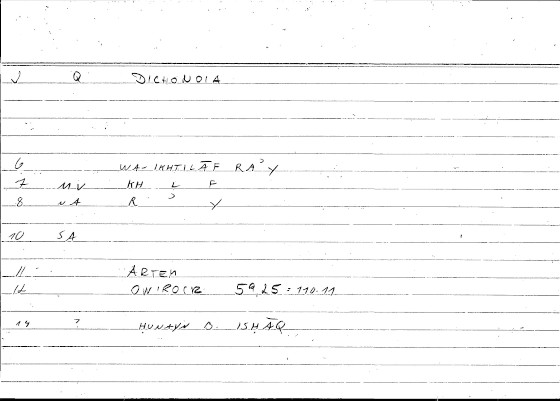 J Q DICHONOIA
6 WA-IKHTILĀF RAʾY
7 MV KH L F
8 NA R ʾ Y
10 SA
11 ARTEM
12 OWIROCR 59,25 = 110.11
14 ? HUNAYN B. ISHĀQ